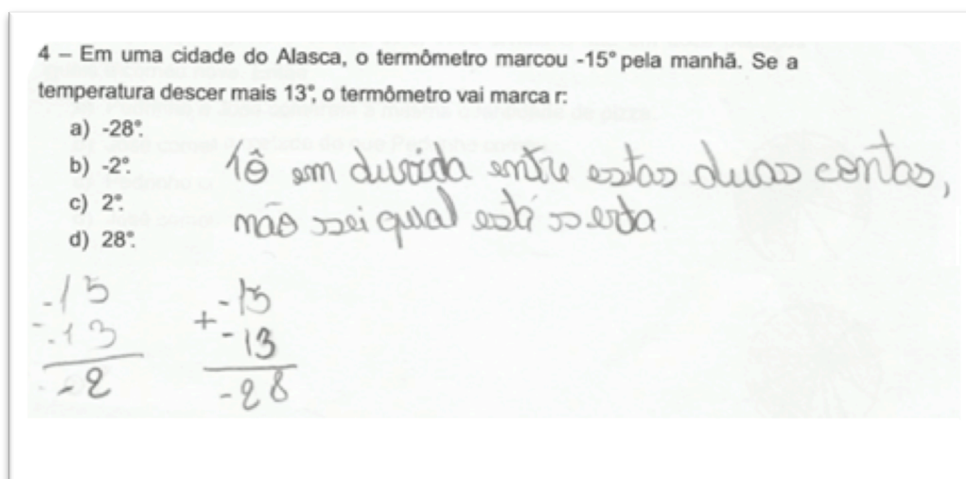 4 – Em uma cidade do Alasca, o termômetro marcou -15° pela manhã. Se a
temperatura descer mais 13°, o termômetro vai marca r:
a) -28°.
b) -2°.
c) 2°.
d) 28°.
Tô em duvida entre estas duas contas,
não sei qual está serta
-15
- -13
-2
-15
+ -13
-28